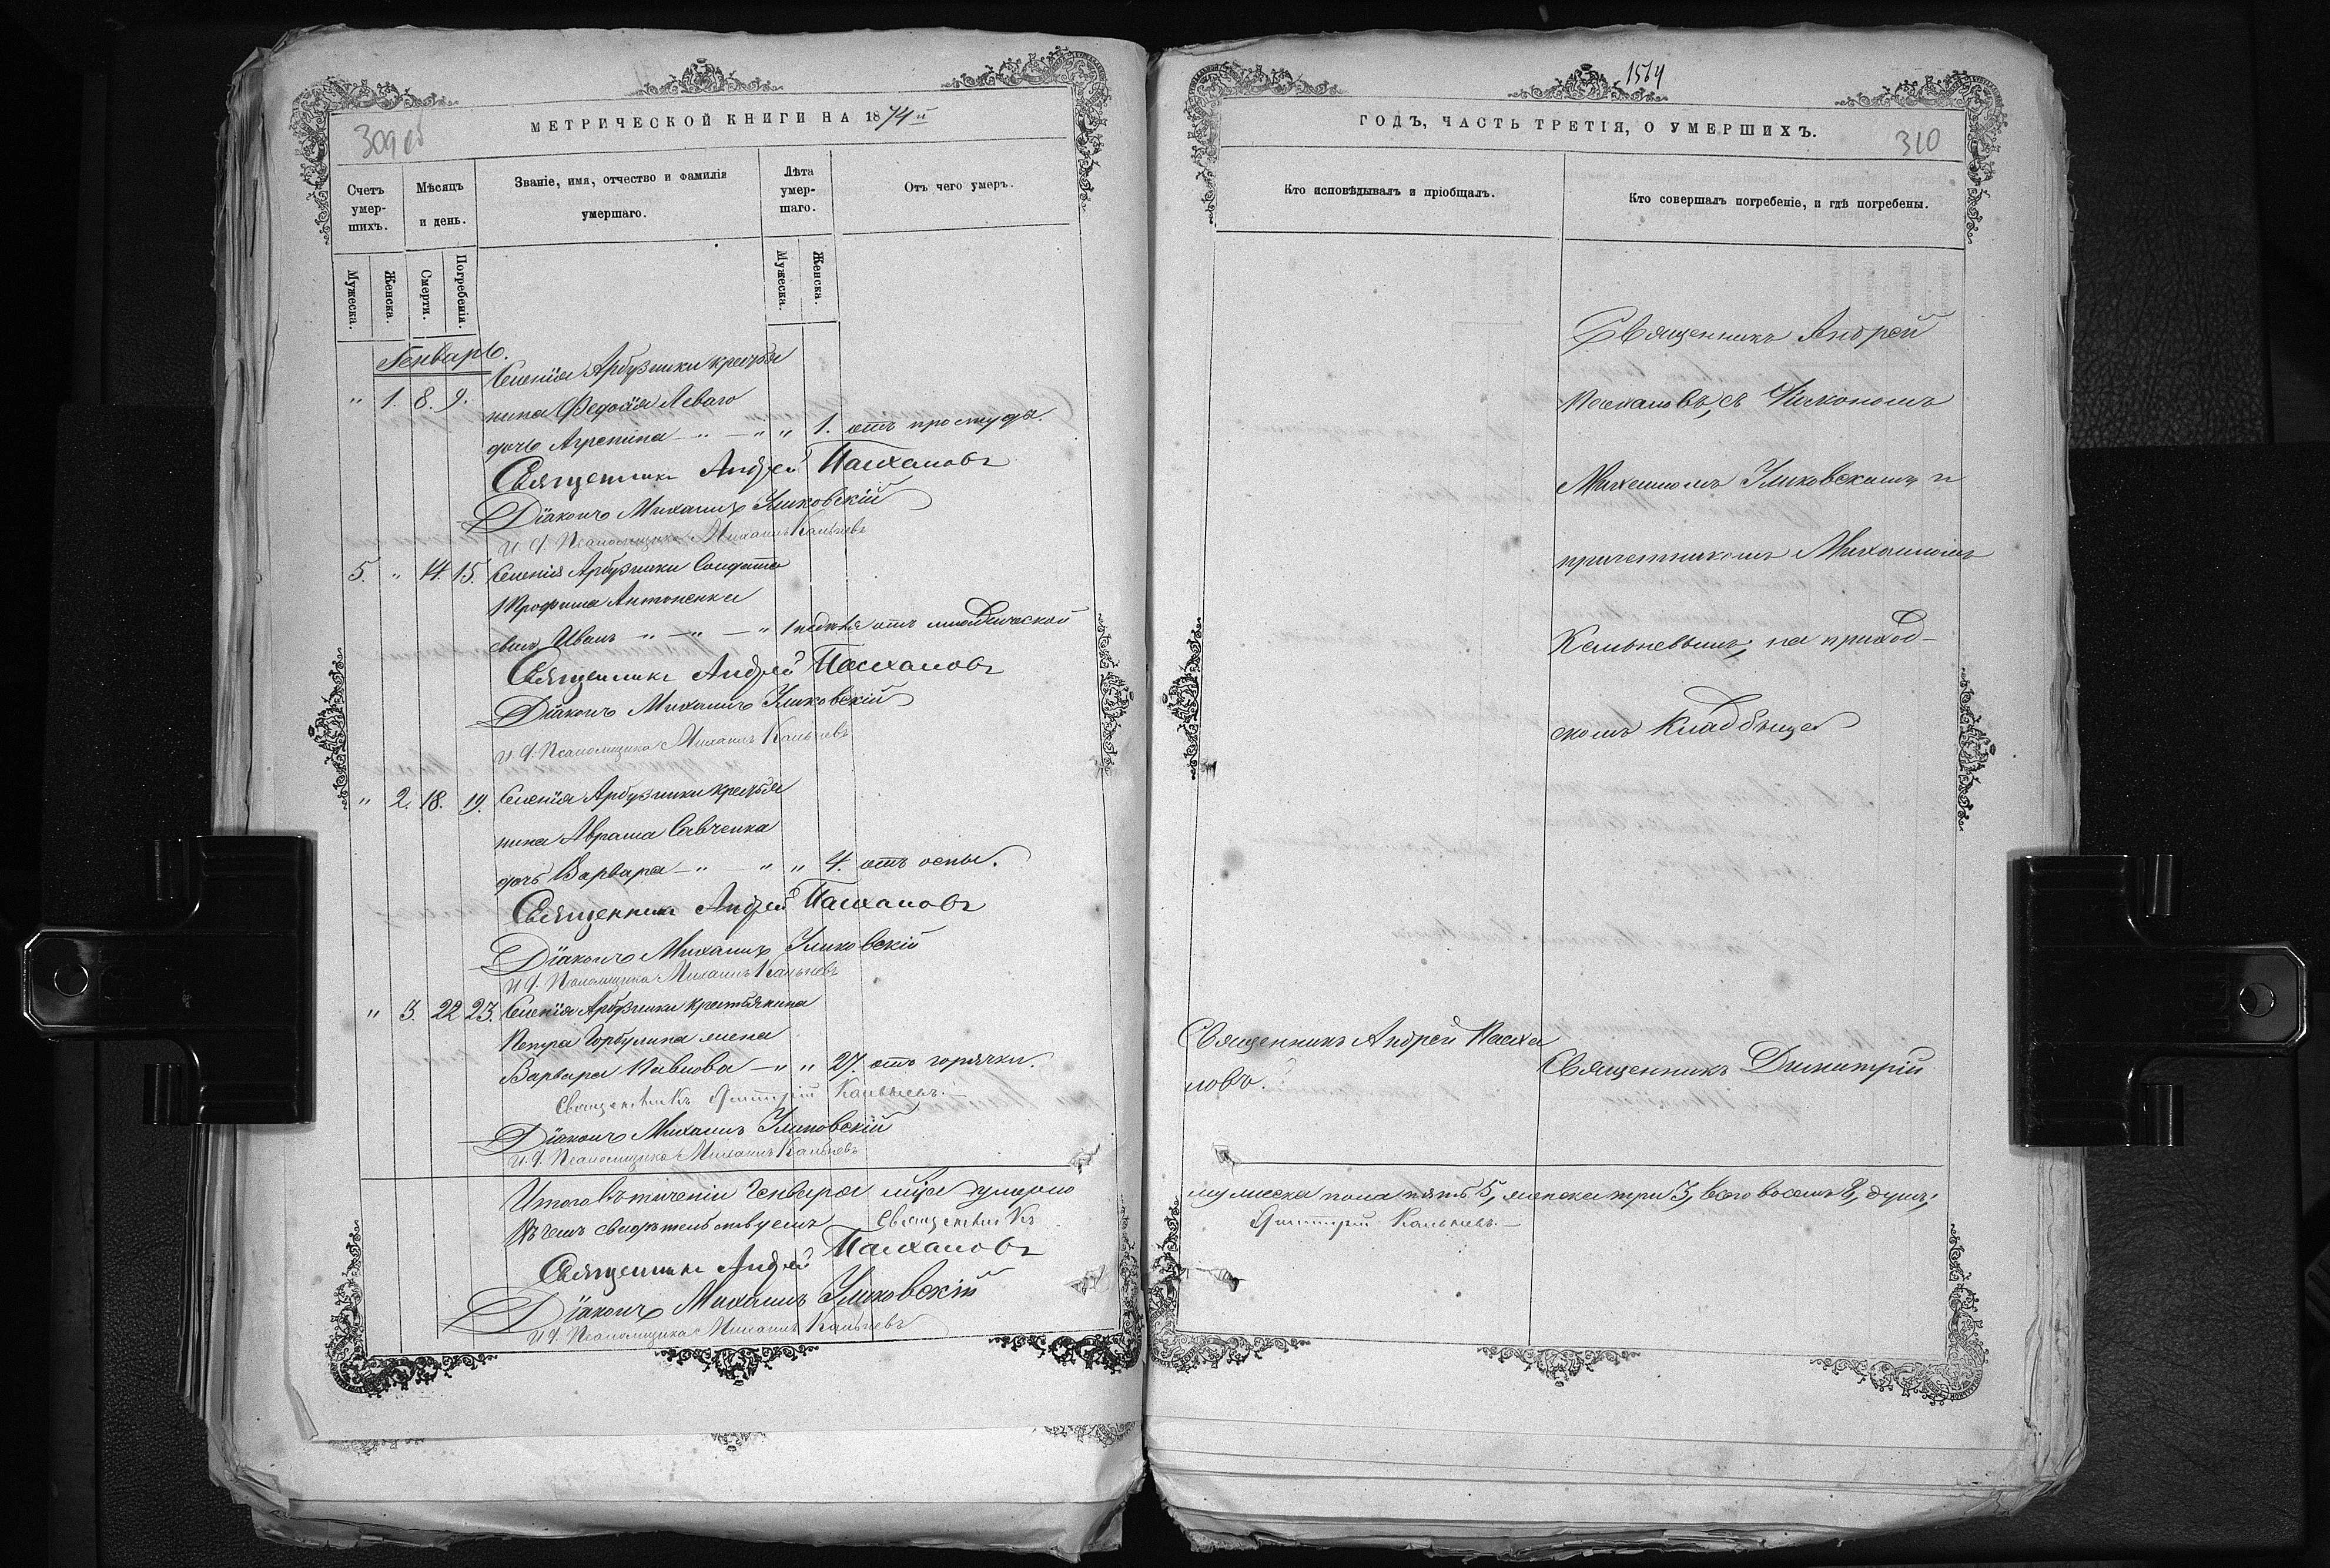 309 об
МЕТРИЧЕСКОЙ КНИГИ НА 1874й
Счетъ умер-шихъ.
Мѣсяцъ и день.
Званіе, имя, отчество и фамилія умершаго.
Лѣта умер-шаго.
Отъ чего умеръ.
Мужеска.
Женска.
Смерти.
Погребенія.
Мужеска.
Женска.
Генварь.
Селенія Арбузинки крестья
" 1. 8. 9. нина Левого
дочь Агрепина — " — " " 1. отъ простуды.
Священникъ Андрей Пасхаловъ
Діаконъ Михаилъ Улиховскій
И. д. Псаломщика Михаилъ Кальневъ
5. " 14. 15. Селенія Арбузинки Солдата
Трофима Антоненка
сынъ Иванъ " — " — " 1 недѣля отъ младенческой
Священникъ Андрей Пасхаловъ
Діаконъ Михаилъ Улиховскій
И. д. Псаломщика Михаилъ Кальневъ
" 2. 18. 19. Селенія Арбузинки крестья
нина Аврама Савченка
дочь Варвара — " — " " 4. отъ оспы.
Священникъ Андрей Пасхаловъ
Діаконъ Михаилъ Улиховскій
И. д. Псаломщика Михаилъ Кальневъ
" 3. 22 23. Селенія Арбузинки крестьянина
Петра Горбулина жена
Варвара Павлова — " " 27. отъ горячки.
Священникъ Дмитрій Кальневъ. —
Діаконъ Михаилъ Улиховскій
И. д. Псаломщика Михаилъ Кальневъ
Итого въ теченіи Генваря мѣсяца умерло
Въ чемъ свидѣтельствуемъ Священникъ
Священникъ Андрей Пасхаловъ
Діаконъ Михаилъ Улиховскій
И. д. Псаломщика Михаилъ Кальневъ
1564
ГОДЪ, ЧАСТЬ ТРЕТІЯ, О УМЕРШИХЪ.
310
Кто исповѣдывалъ и пріобщалъ.
Кто совершалъ погребеніе, и гдѣ погребены.
Священникъ Андрей
Пасхаловъ, съ Діакономъ
Михаиломъ Улиховскимъ и
причетникомъ Михаиломъ
Кальневымъ, на приход-
скомъ кладбищѣ
Священникъ Андрей Пасха
ловъ.
Священникъ Димитрій
мужеска пола пять 5, женска три 3, всего восемь 8, душъ;
Дмитрій Кальневъ. —